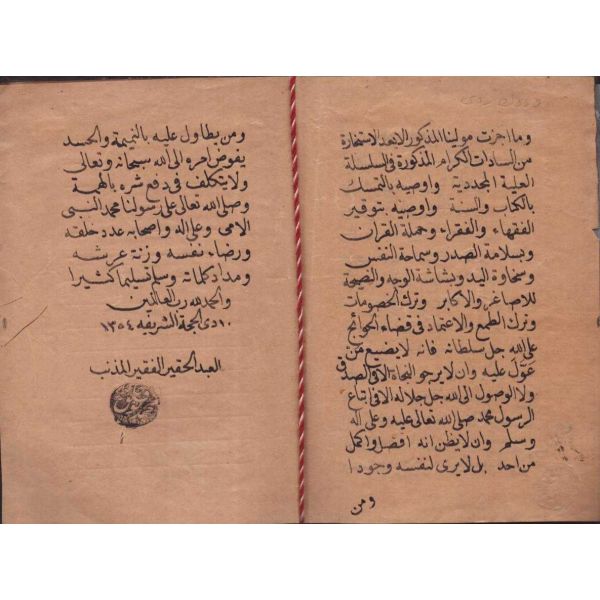 وما اجزت مولينا المذكور الا بعد الاستخارة
من السادات الكرام المذكورة فى السلسلة
العلية المجددية واوصيه بالتمسك
بالكتاب والسنة واوصيه بتوقير
الفقهاء والفقراء وحملة القرآن
وبسلامة الصدر وسماحة النفس
وسخاوة اليد وبشاشة الوجه والنصيحة
للاصاغر والاكابر وترك الخصومات
وترك الطمع والاعتماد فى قضاء الحوائج
على الله جل سلطانه فانه لا يضيع من
عوّل عليه وان لا يرجو النجاة الا فى الصدق
ولا الوصول الى الله جل جلاله الا فى اتباع
الرسول محمد صلى الله تعالى عليه وعلى اله
وسلم وان لا يظن انه افضل واكمل
من احد بل لا يرى لنفسه وجودا
ومن
ومن يطاول عليه بالنميمة والحسد
يفوض امره الى الله سبحانه وتعالى
ولا يتكلف فى دفع شره بالهمة
وصلى الله تعالى على رسولنا محمد النبى
الامى وعلى اله واصحابه عدد خلقه
ورضاء نفسه وزنة عرشه
ومداد كلماته وسلم تسليما كثيرا
والحمد لله رب العالمين
١٠ ذى الحجة الشريفه ١٣٥٤
العبد الحقير الفقير المذنب